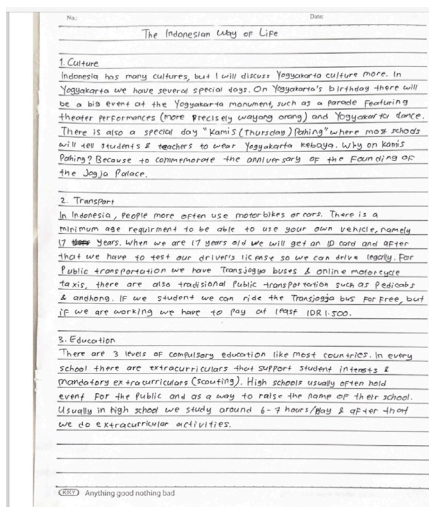 No.: Date:
The Indonesian Way of Life
1. Culture
Indonesia has many cultures, but I will discuss Yogyakarta culture more. In
Yogyakarta we have several special days. On Yogyakarta's birthday there will
be a big event at the Yogyakarta monument, such as a parade featuring
theater performances (more precisely wayang orang) and Yogyakarta dance.
There is also a special day "Kamis (Thursday) Pahing" where most schools
will tell students & teachers to wear Yogyakarta kebaya. Why on Kamis
Pahing? Because to commemorate the anniversary of the Founding of
the Jogja Palace.
2. Transport
In Indonesia, people more often use motorbikes or cars. There is a
minimum age requirment to be able to use your own vehicle, namely
17 years. When we are 17 years old we will get an ID card and after
that we have to test our driver's license so we can drive legally. For
Public transportation we have Transjogja buses & online motorcycle
taxis, there are also tradisional Public transportation such as Pedicabs
& andhong. If we student we can ride the Transjogja bus for free, but
if we are working we have to pay at least IDR 1.500.
3. Education
There are 3 levels of compulsory education like most countries. In every
school there are extracurriculars that support student interests &
mandatory extracurriculars (scouting). High schools usually often hold
event for the public and as a way to raise the name of their school.
Usually in high school we study around 6-7 hours/day & after that
we do extracurricular activities.
KKY Anything good nothing bad